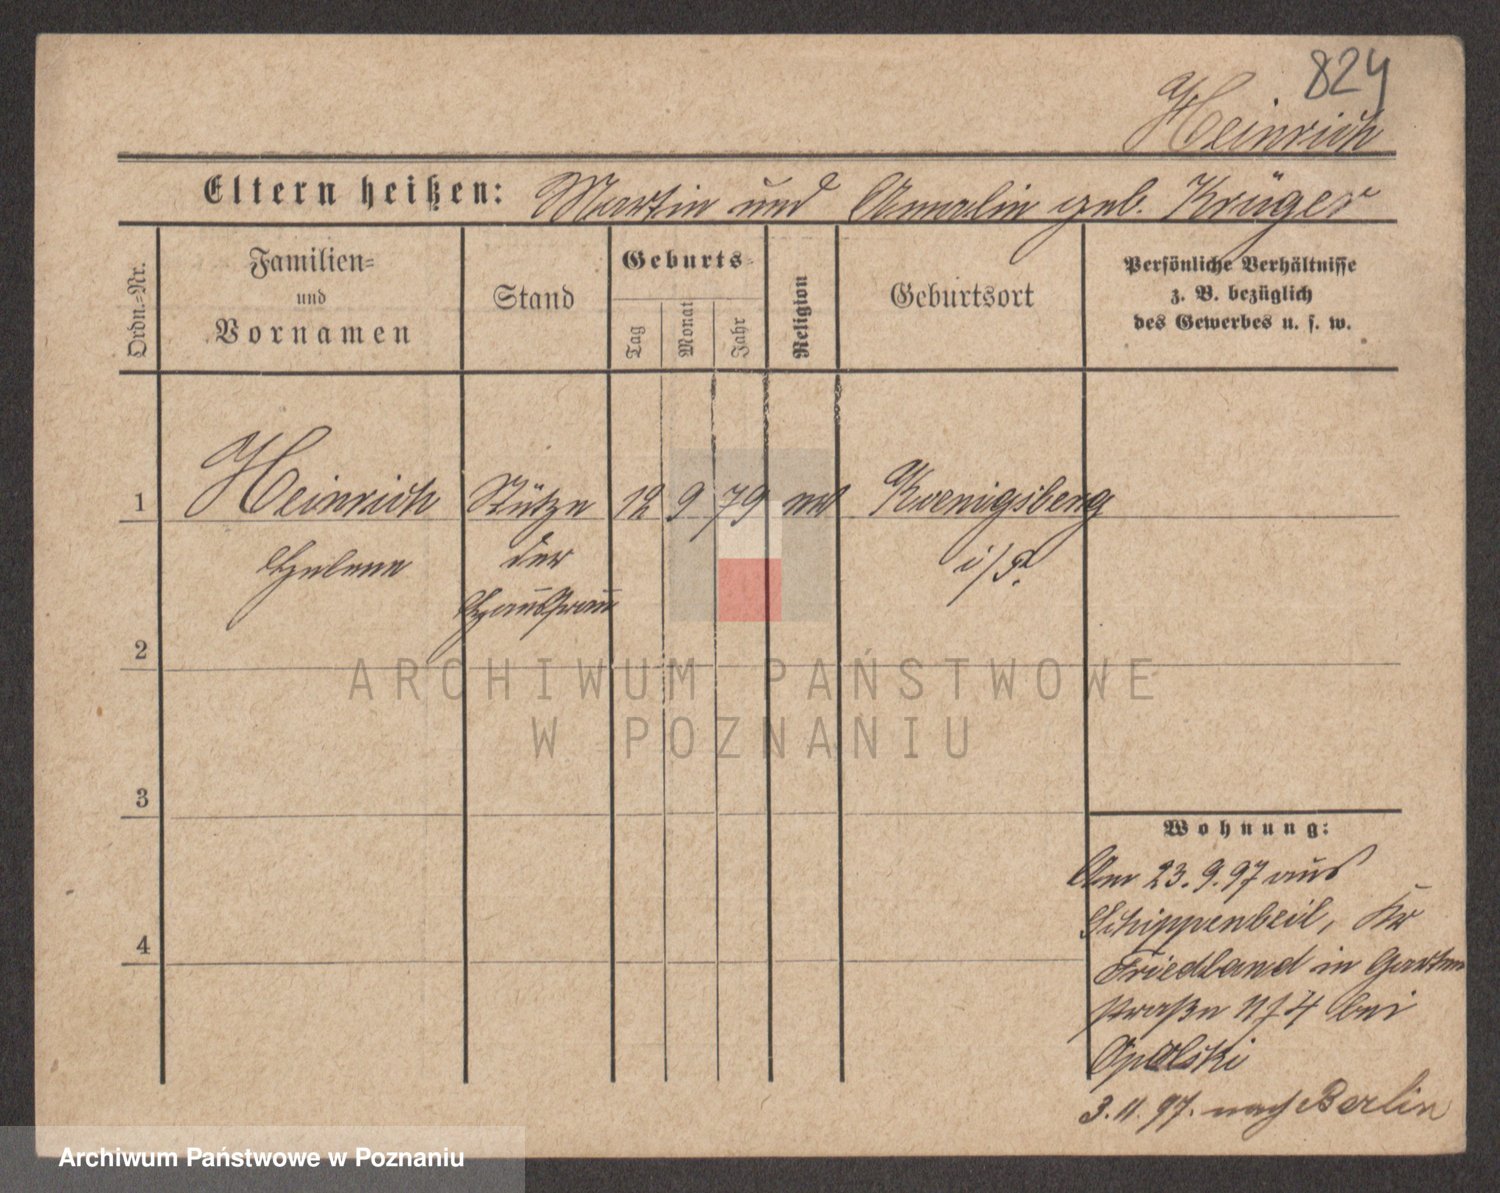 824
Heinrich
Eltern heißen: Martin und Amalie geb. Krüger
Ordn.=Nr.
Familien=
und
Vornamen
Stand
Geburts=
Tag
Monat
Jahr
Religion
Geburtsort
Persönliche Verhältnisse
z. B. bezüglich
des Gewerbes u. s. w.
1 Heinrich Stütze 12 9 79 ev Koenigsberg
Helene der i/P.
Hausfrau
2
ARCHIWUM PAŃSTWOWE
W POZNANIU
3
Wohnung:
Am 23.9.97 aus
Schippenbeil, Kr
Friedland in Garten
4
straße 4 bei
Opolski
3.11.97. nach Berlin
Archiwum Państwowe w Poznaniu